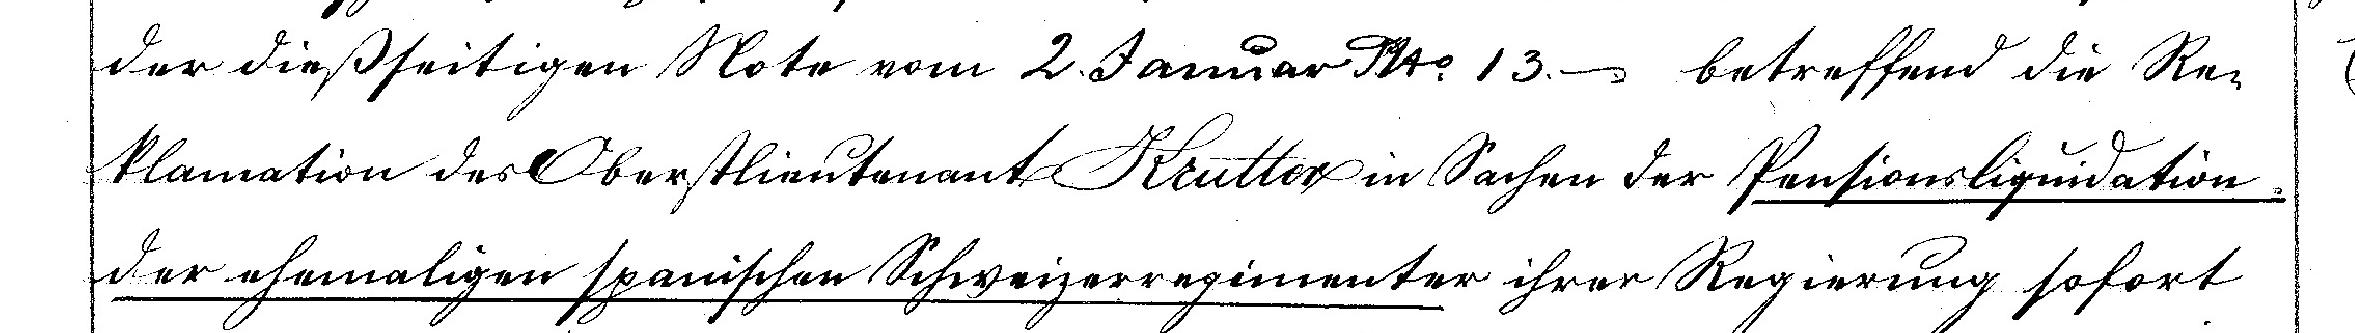 der dießseitigen Note vom 2. Januar No. 13. – betreffend die Re-
klamation des Oberstlieutenant Krutter in Sachen der Pensionsliquidation
der ehemaligen spanischen Schweizerregimenter ihrer Regierung sofort